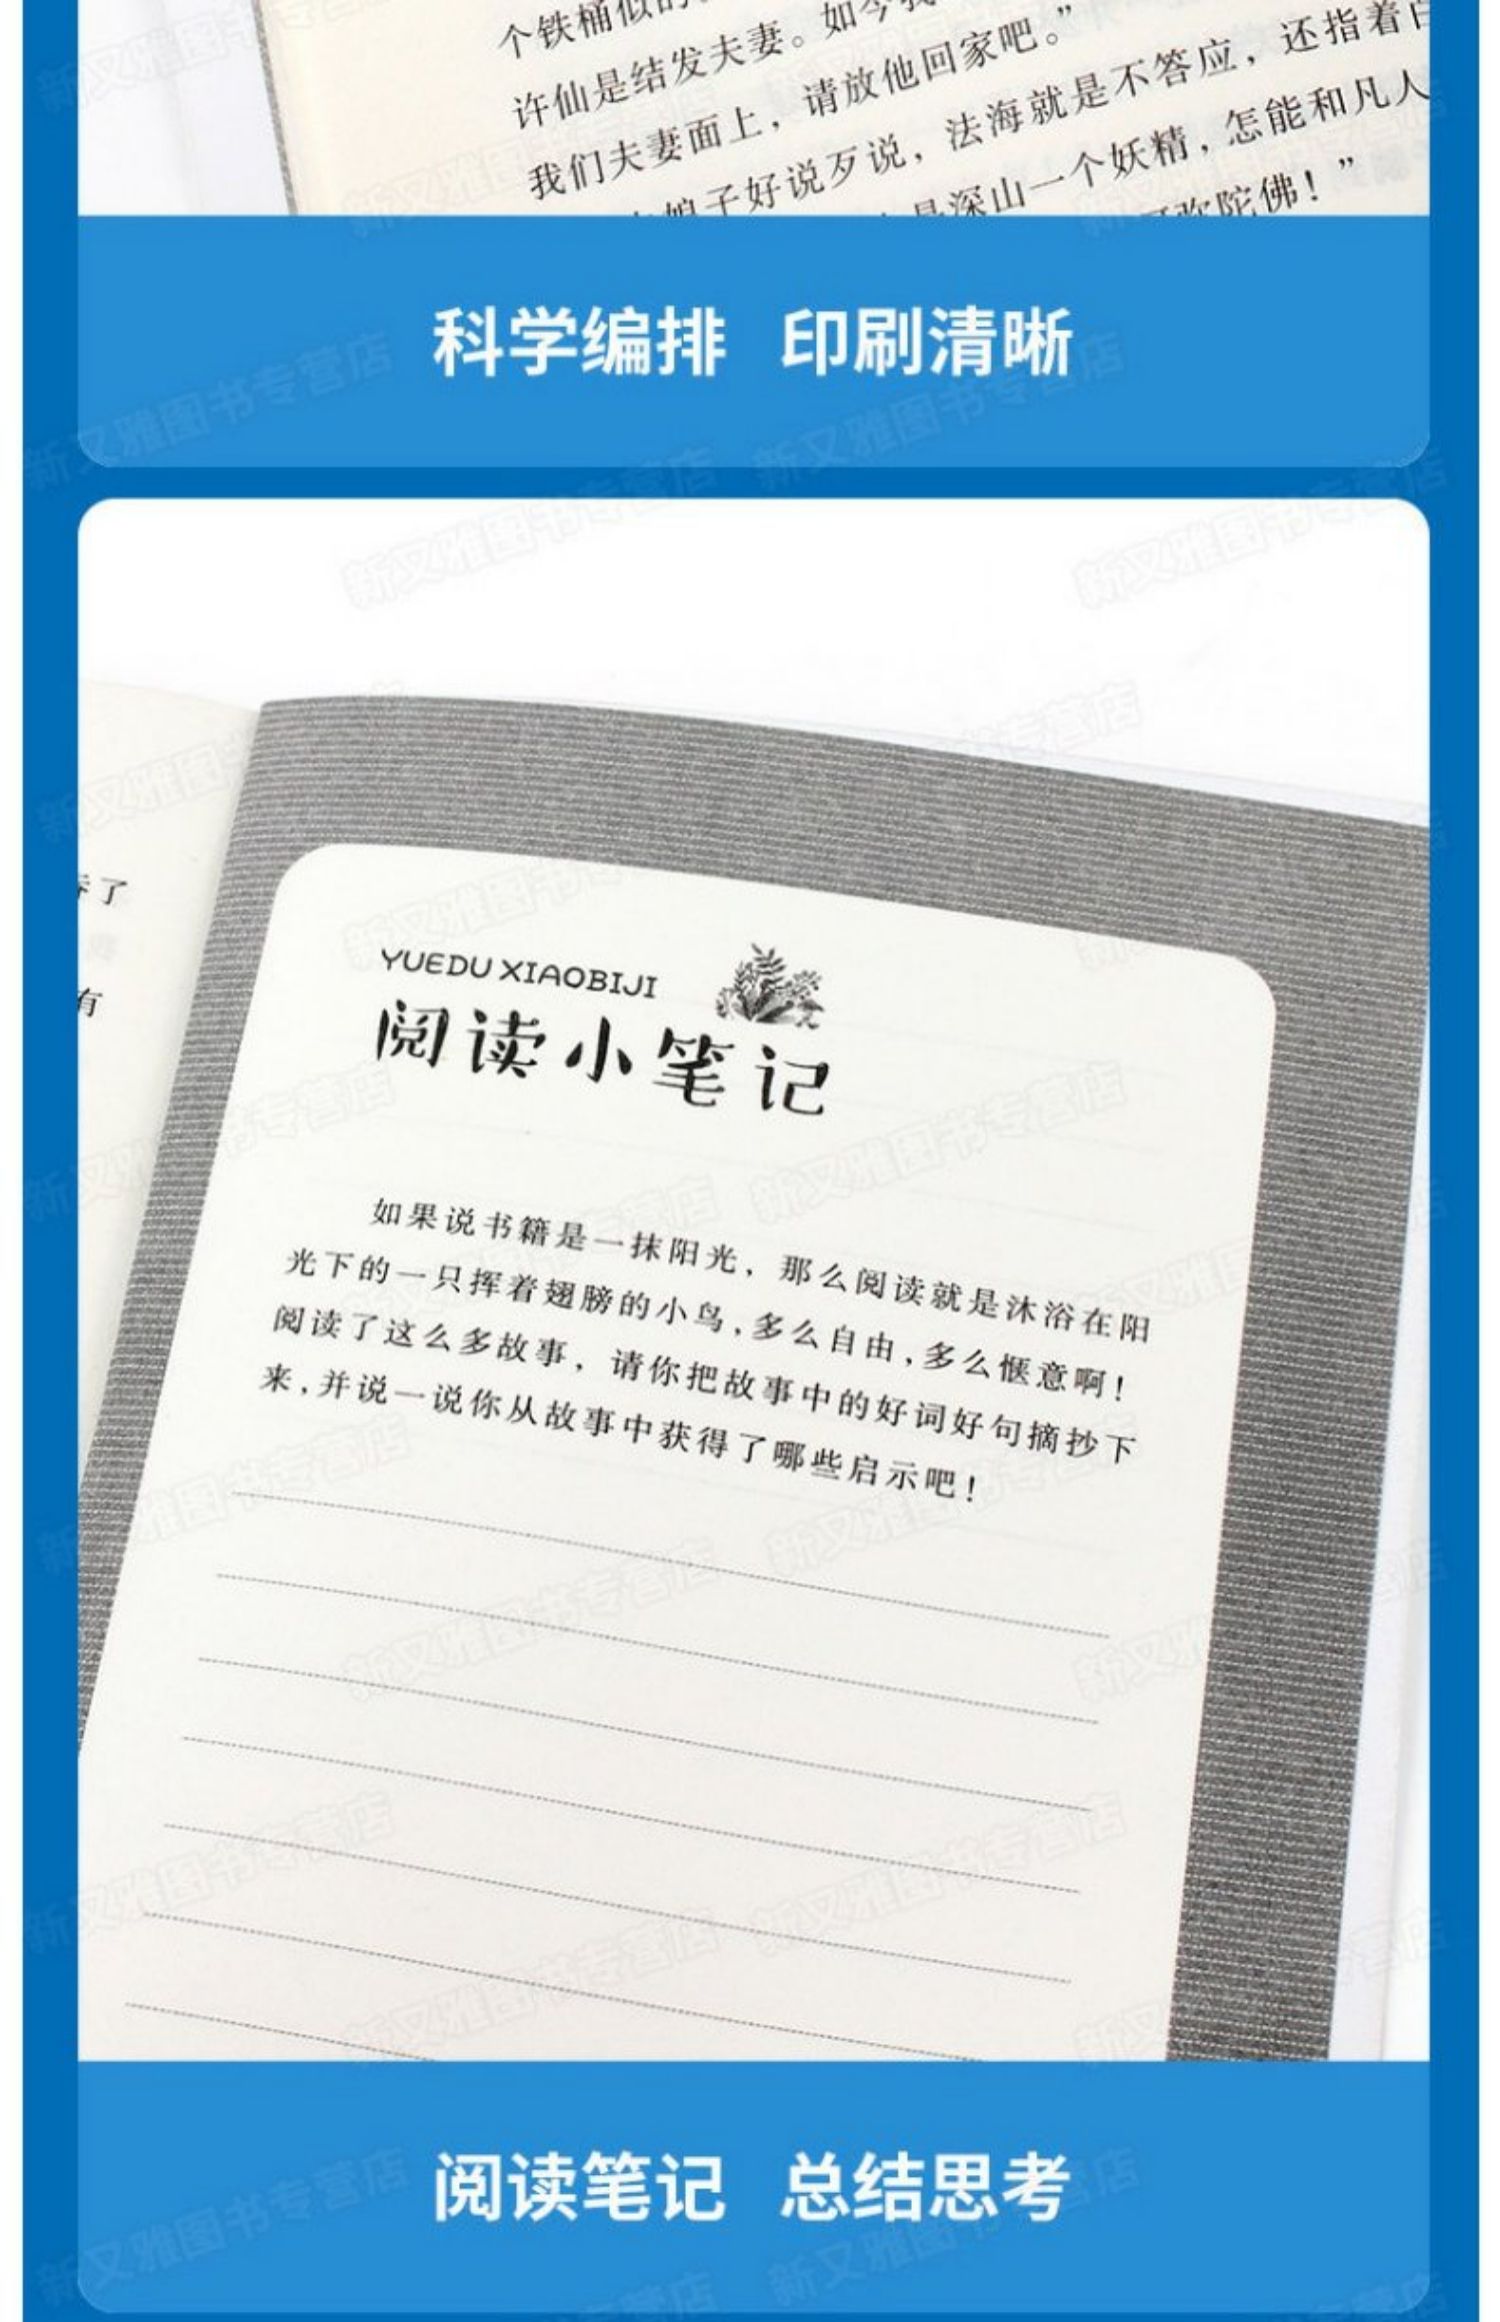 个铁桶似的
许仙是结发夫妻。如今我
我们夫妻面上，请放他回家吧。”
娘子好说歹说，法海就是不答应，还指着白
是深山一个妖精，怎能和凡人
弥陀佛！”
科学编排 印刷清晰
了
有
YUEDU XIAOBIJI
阅读小笔记
如果说书籍是一抹阳光，那么阅读就是沐浴在阳
光下的一只挥着翅膀的小鸟，多么自由，多么惬意啊！
阅读了这么多故事，请你把故事中的好词好句摘抄下
来，并说一说你从故事中获得了哪些启示吧！
阅读笔记 总结思考
新文雅图书专营店